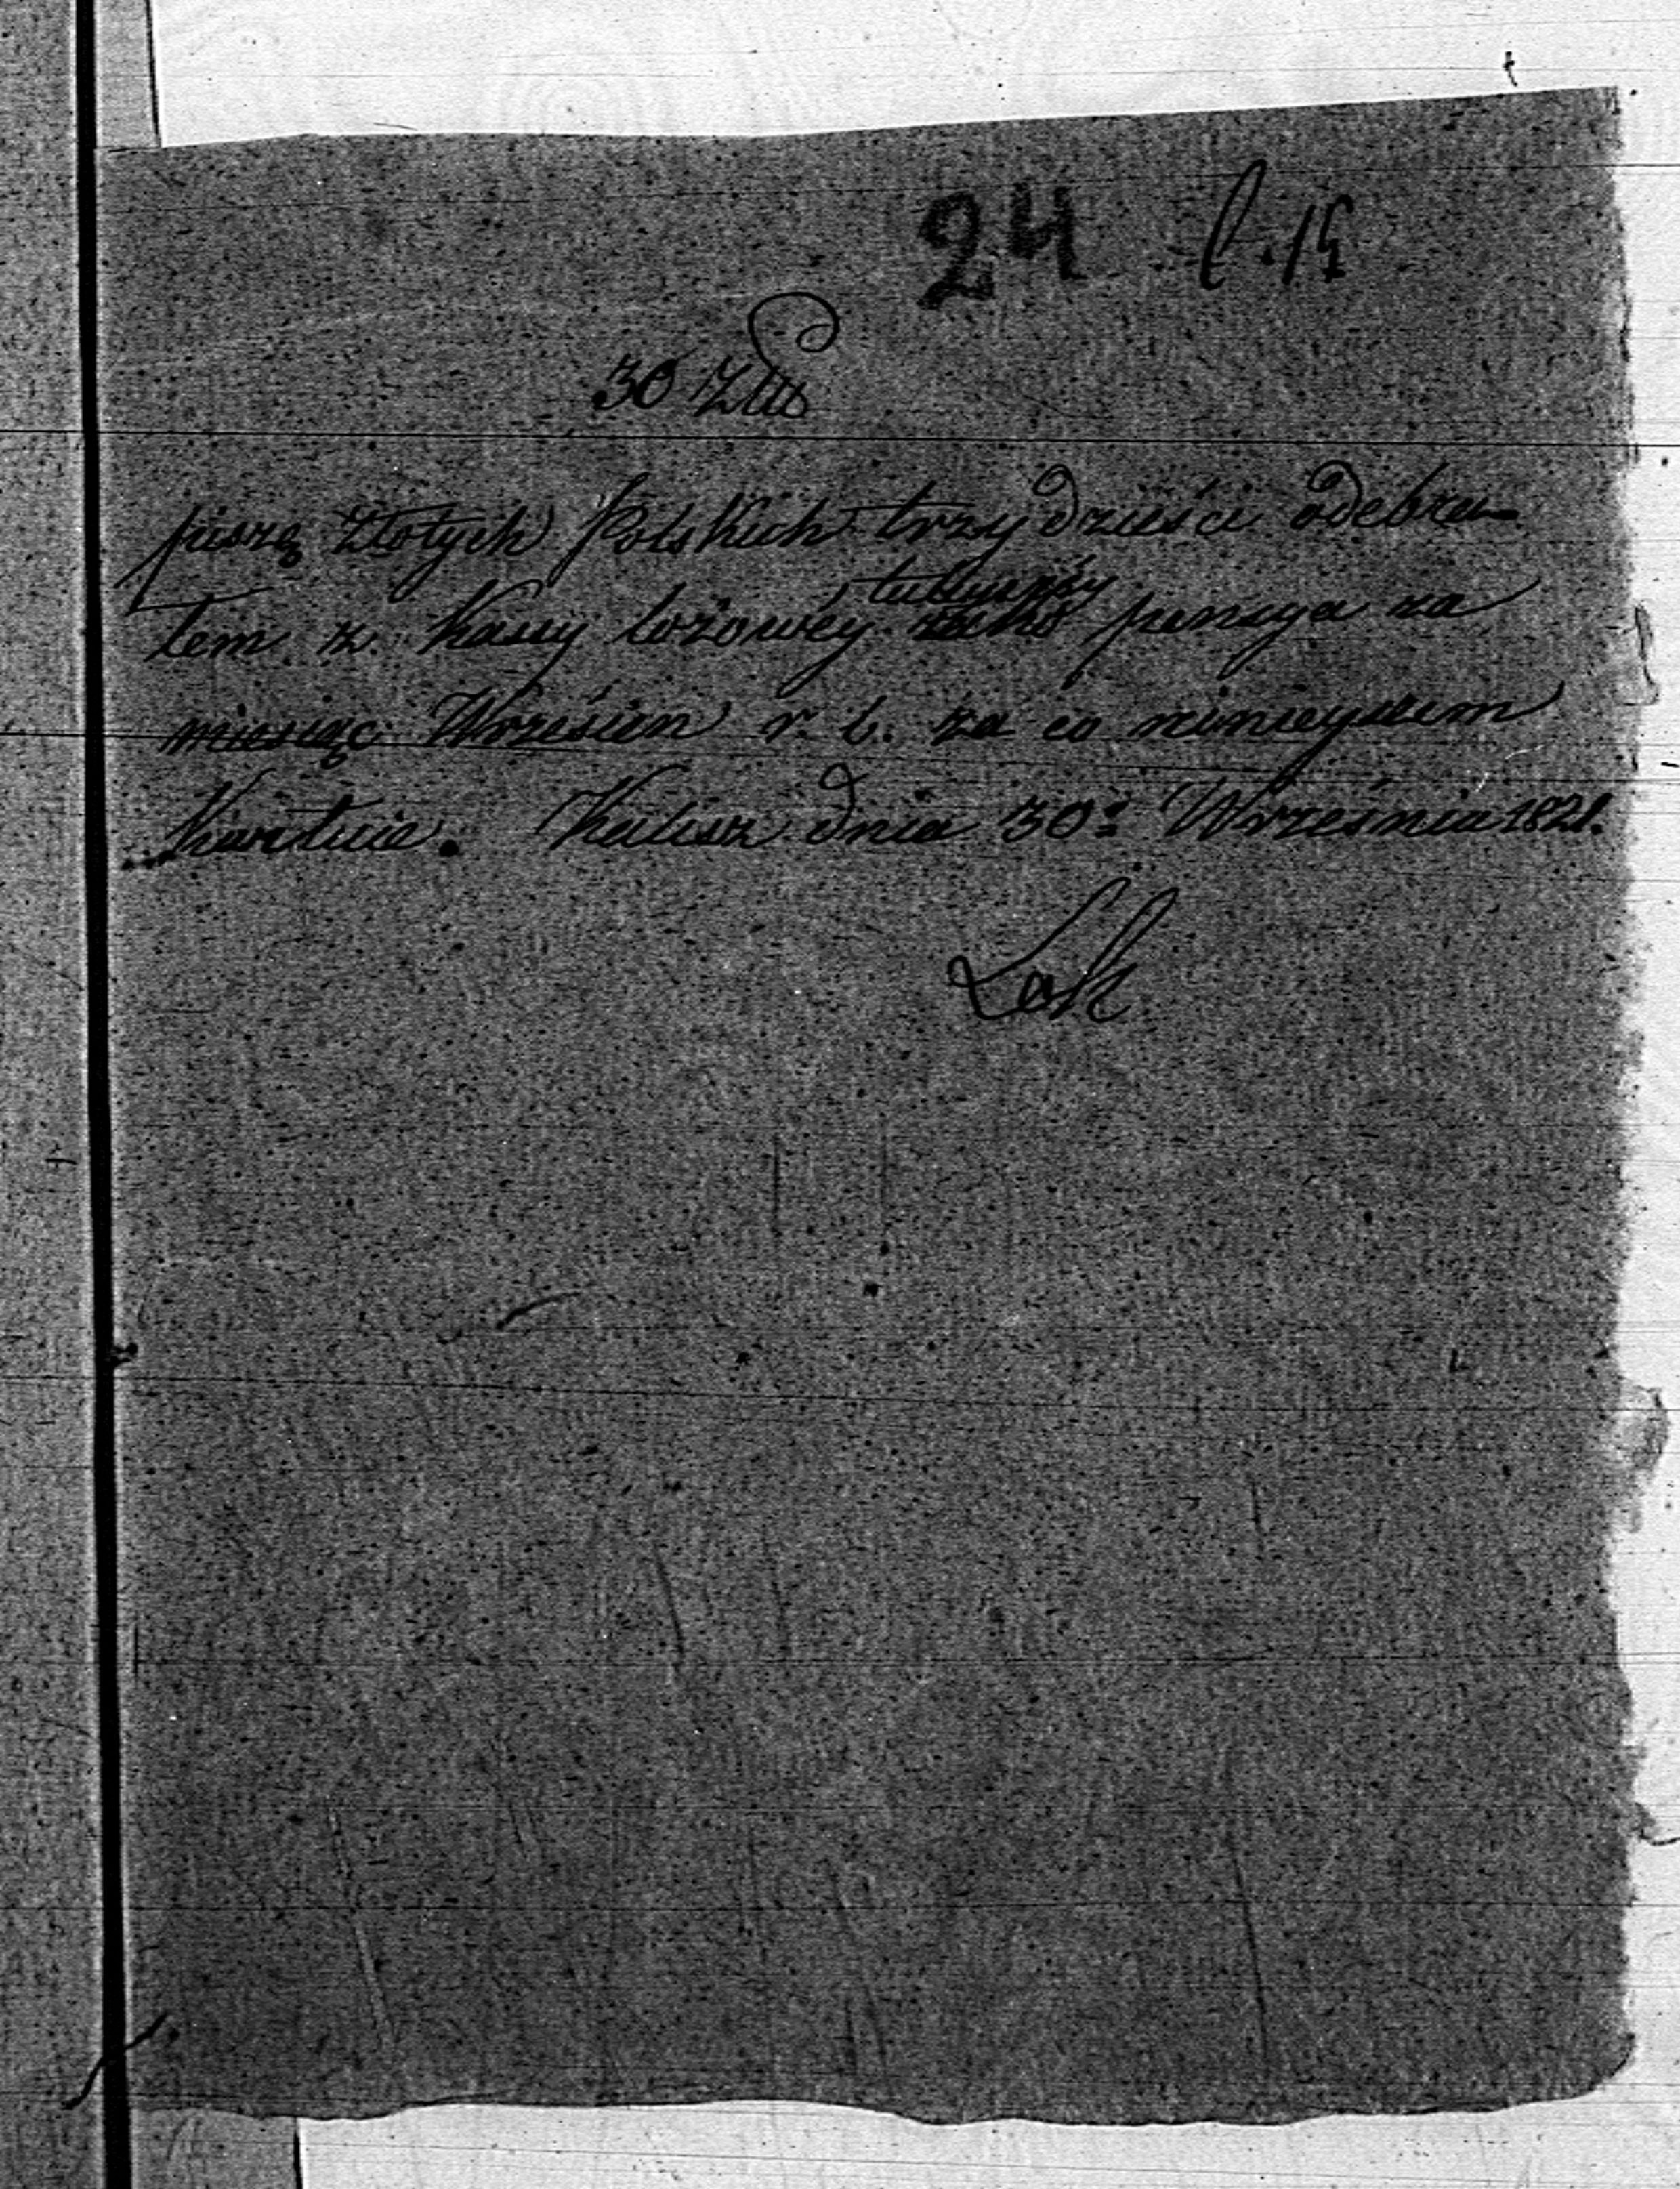 24 l. 14
30 Złł
piszę Złotych Polskich trzydzieści odebra-
łem z. Kassy lożowéy tytułem pensya za
miesiąc Wrzesien r. b. za co ninieyszem
kwituie. Kalisz dnia 30. Wrzesnia 1821.
Lask